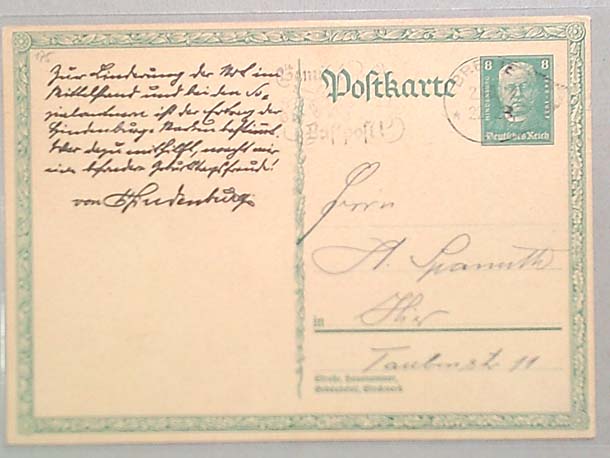 Zur Linderung der Not im
Mittelstand und bei den So-
zialrentnern ist der Ertrag der
Hindenburg-Marken bestimmt.
Wer dazu mithilft, macht mir
eine besondere Geburtstagsfreude!
von Hindenburg
Postkarte
8 8
HINDENBURG
Deutsches Reich
BRE
Herrn
A. Spanuth
in Hier
Taubenstr 11
Straße, Hausnummer,